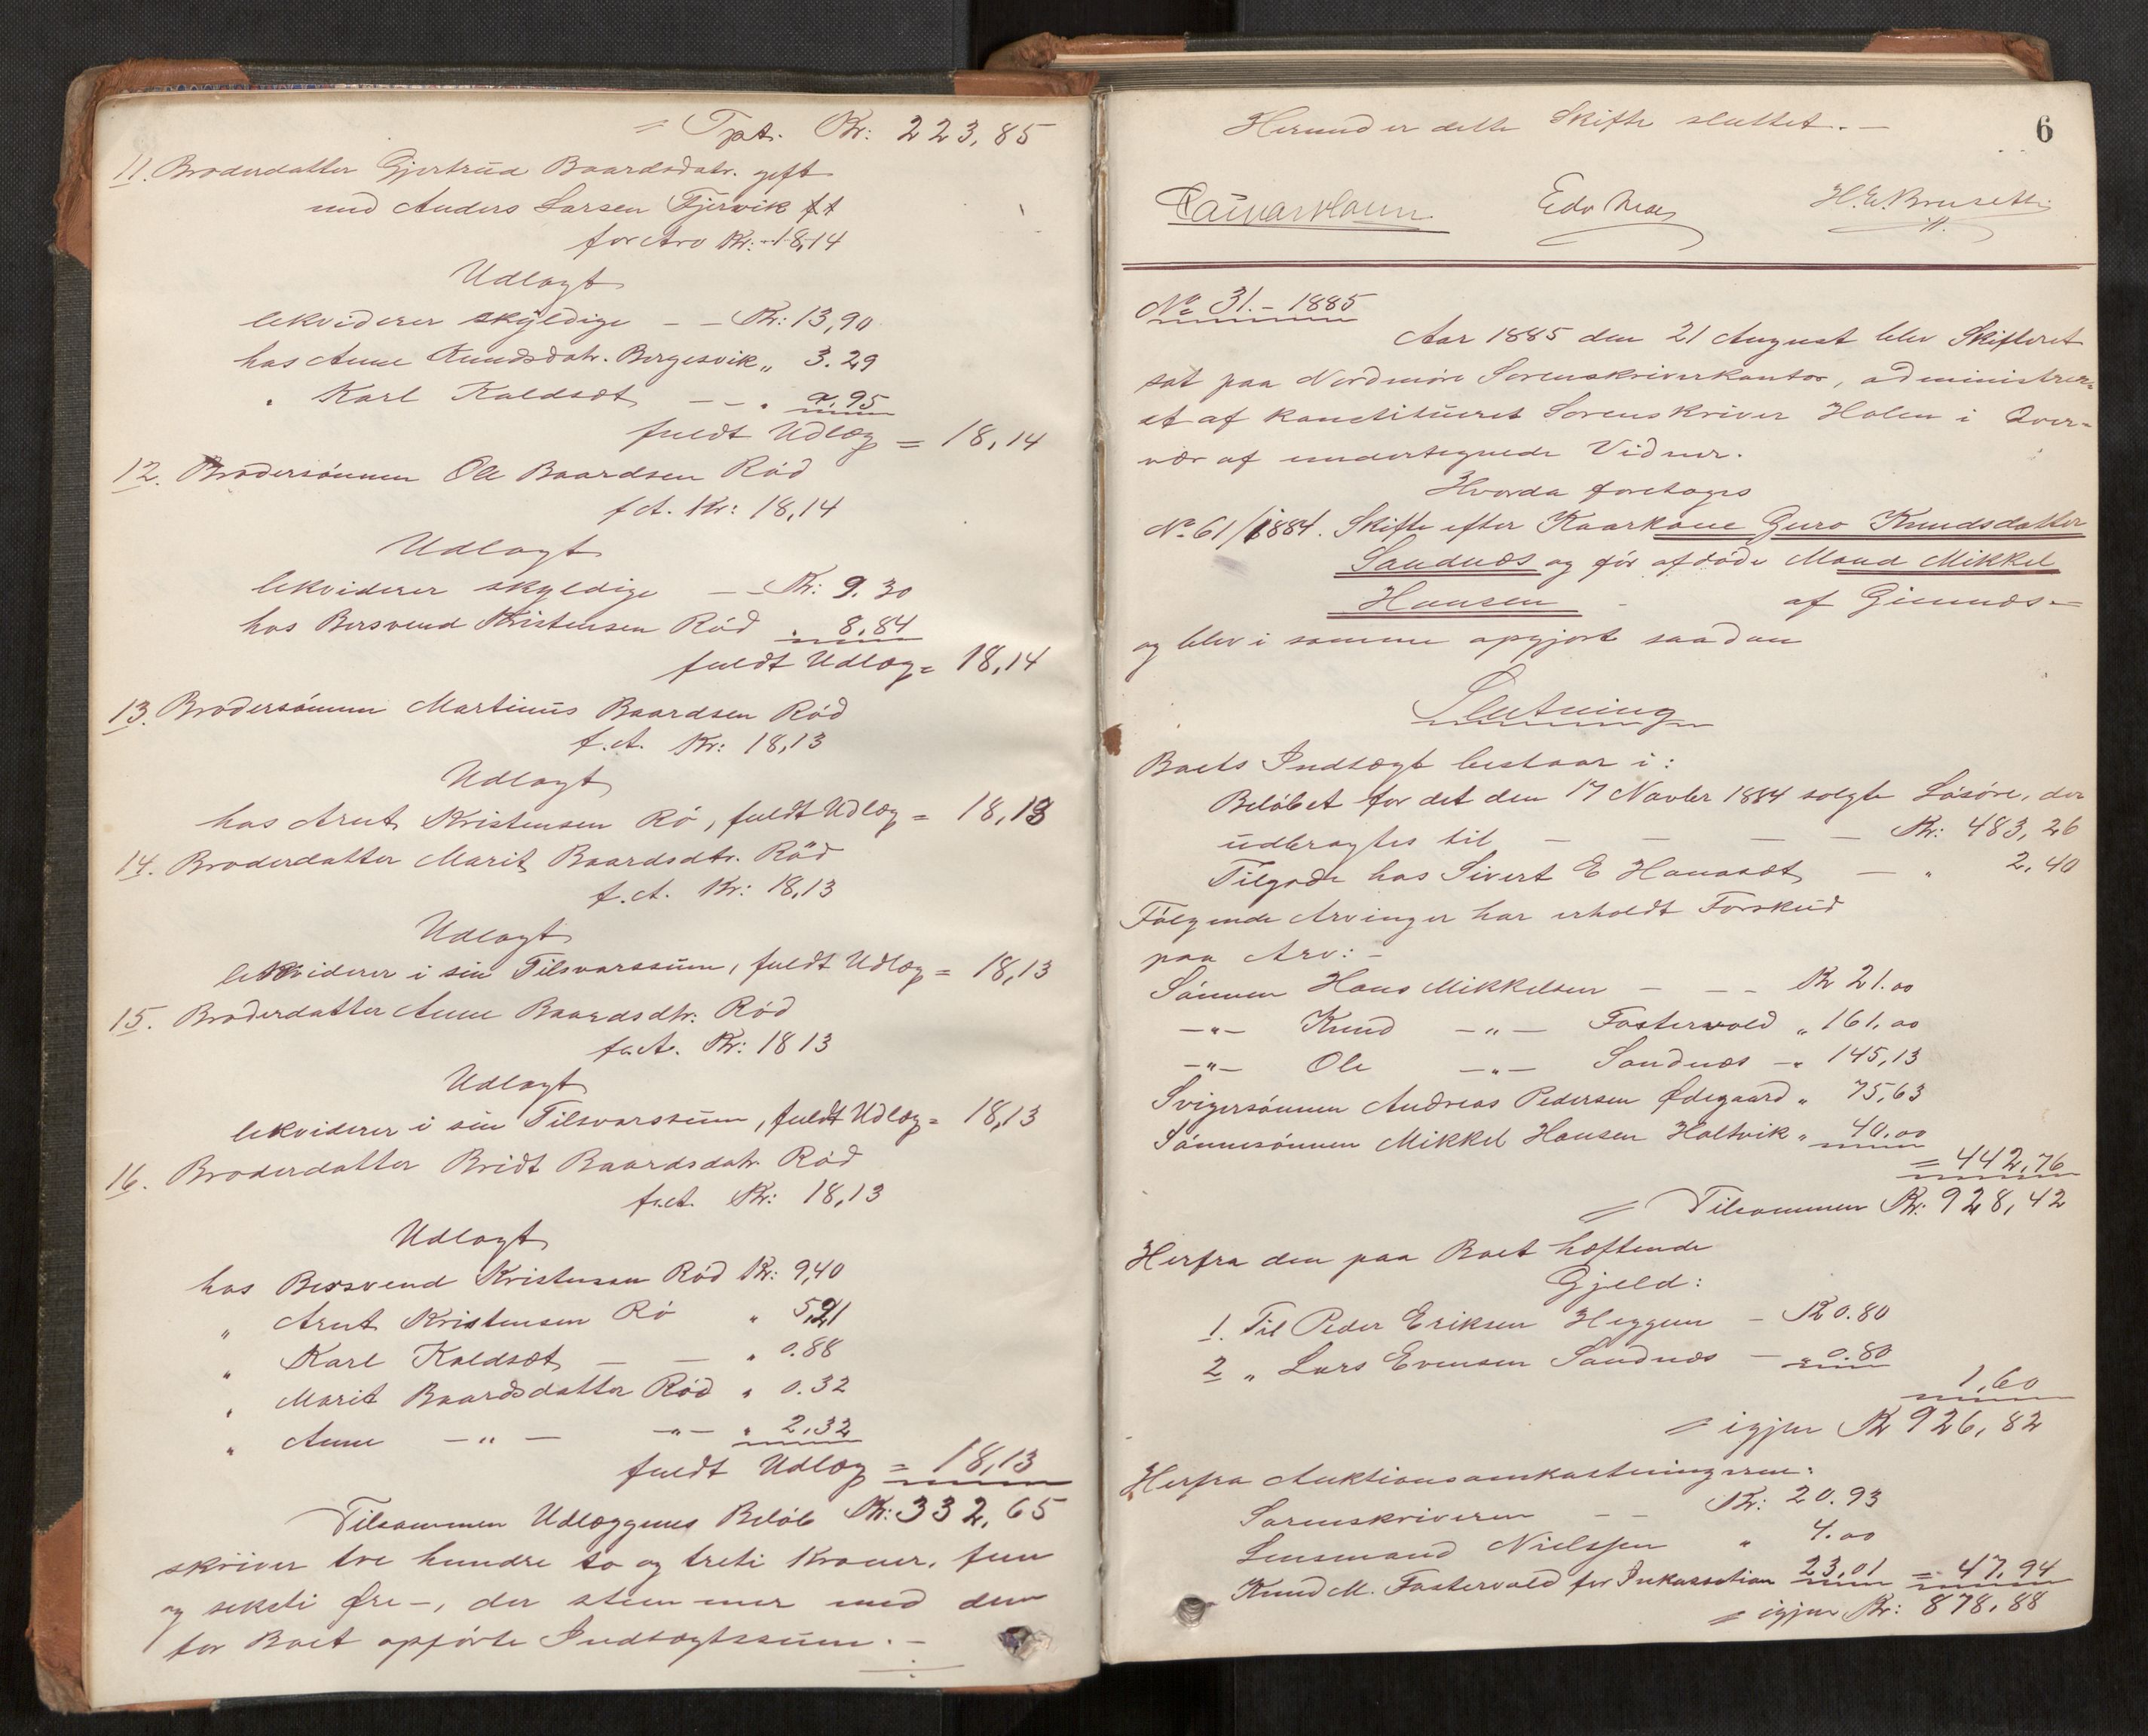 = Tpt. Kr: 223,85
11. Broderdatter Gjertrud Baardsdatr. gift
med Anders Larsen Fjervik f A
for Arv Kr: 18,14
Udlagt
likviderer skyldige - - Kr: 13,90
hos Anne Knudsdatr. Borgesvik „ 3.29
" Karl Kaldsæt - - " 0,95
fuldt Udlæg = 18,14
12. Brodersönnen Ole Baardsen Röd
f A. Kr: 18,14
Udlagt
likviderer skyldige - - Kr: 9.30
hos Bersvend Kristensen Röd " 8,84
fuldt Udlæg = 18,14
13. Brodersönnen Martinus Baardsen Röd
f. A. Kr: 18,13
Udlagt
hos Arnt Kristensen Rö, fuldt Udlæg = 18,13
14. Broderdatter Marit Baardsdtr. Röd
f. A. Kr: 18,13
Udlagt
likviderer i sin Tilsvarssum, fuldt Udlæg = 18,13
15. Broderdatter Anne Baardsdtr. Röd
f. A. Kr: 18 13
Udlagt
likviderer i sin Tilsvarssum, fuldt Udlæg = 18,13
16. Broderdatter Bridt Baardsdatr Röd
f. A. Kr: 18,13
Udlagt
hos Bersvend Kristensen Röd Kr: 9,40
" Arnt Kristensen Rö " 5,21
" Karl Kaldsæt - - " 0.88
" Marit Baardsdatter Röd " 0.32
" Anne - " - - " - " 2,32
fuldt Udlæg = 18,13
Tilsammen Udlæggenes Beløb Kr: 332,65
skriver tre hundre to og treti Kroner, fem
og seksti Øre -, der stemmer med den
for Boet opførte Indtægtssum. -
Herunder dette Skifte sluttet. -
6
Edv Moe H. E. Brusethi
No 31. - 1885
Aar 1885 den 21 August blev Skifteret
sat paa Nordmøre Sorenskriverkontor, administrer=
et af konstitueret Sorenskriver Holen i Over=
vær af undertegnede Vidner.
Hvorda foretoges
No. 61/1884. Skifte efter Kaarkone Guro Knudsdatter
Sandnæs og før afdöde Mand Mikkel
Hansen - af Gimnæs -
og blev i samme opgjort saadan
Slutning
Boets Indtægt bestaar i:
Beløbet for det den 17 Novbr 1884 solgte Løsøre, der
udbragtes til - - - - Kr: 483,26
Tilgode hos Sivert E Hanasæt - " 2,40
Følgende Arvinger har erholdt Forskud
paa Arv: -
Sönnen Hans Mikkelsen - - - Kr 21.00
- " - Knud - " - Fostervold „ 161,00
- " - Ole - " - Sandnæs - " 145,13
Svigersönnen Andreas Pedersen Ødegaard " 75,63
Sönnesönnen Mikkel Hansen Holtvik " 40,00
= 442,76
= Tilsammen Kr: 928,42
Herfra den paa Boet hæftende
Gjeld:
1. Til Peder Eriksen Heggem - Kr 0.80
2 „ Lars Evensen Sandnæs - " 0.80
1,60
= igjen Kr 926,82
Herfra Auktionsomkostningerne:
Sorenskriveren - - Kr: 20.93
Lensmand Nielssen " 4.00
Knud M. Fostervold for Inkassation 23,01 = 47,94
= igjen Kr: 878,88